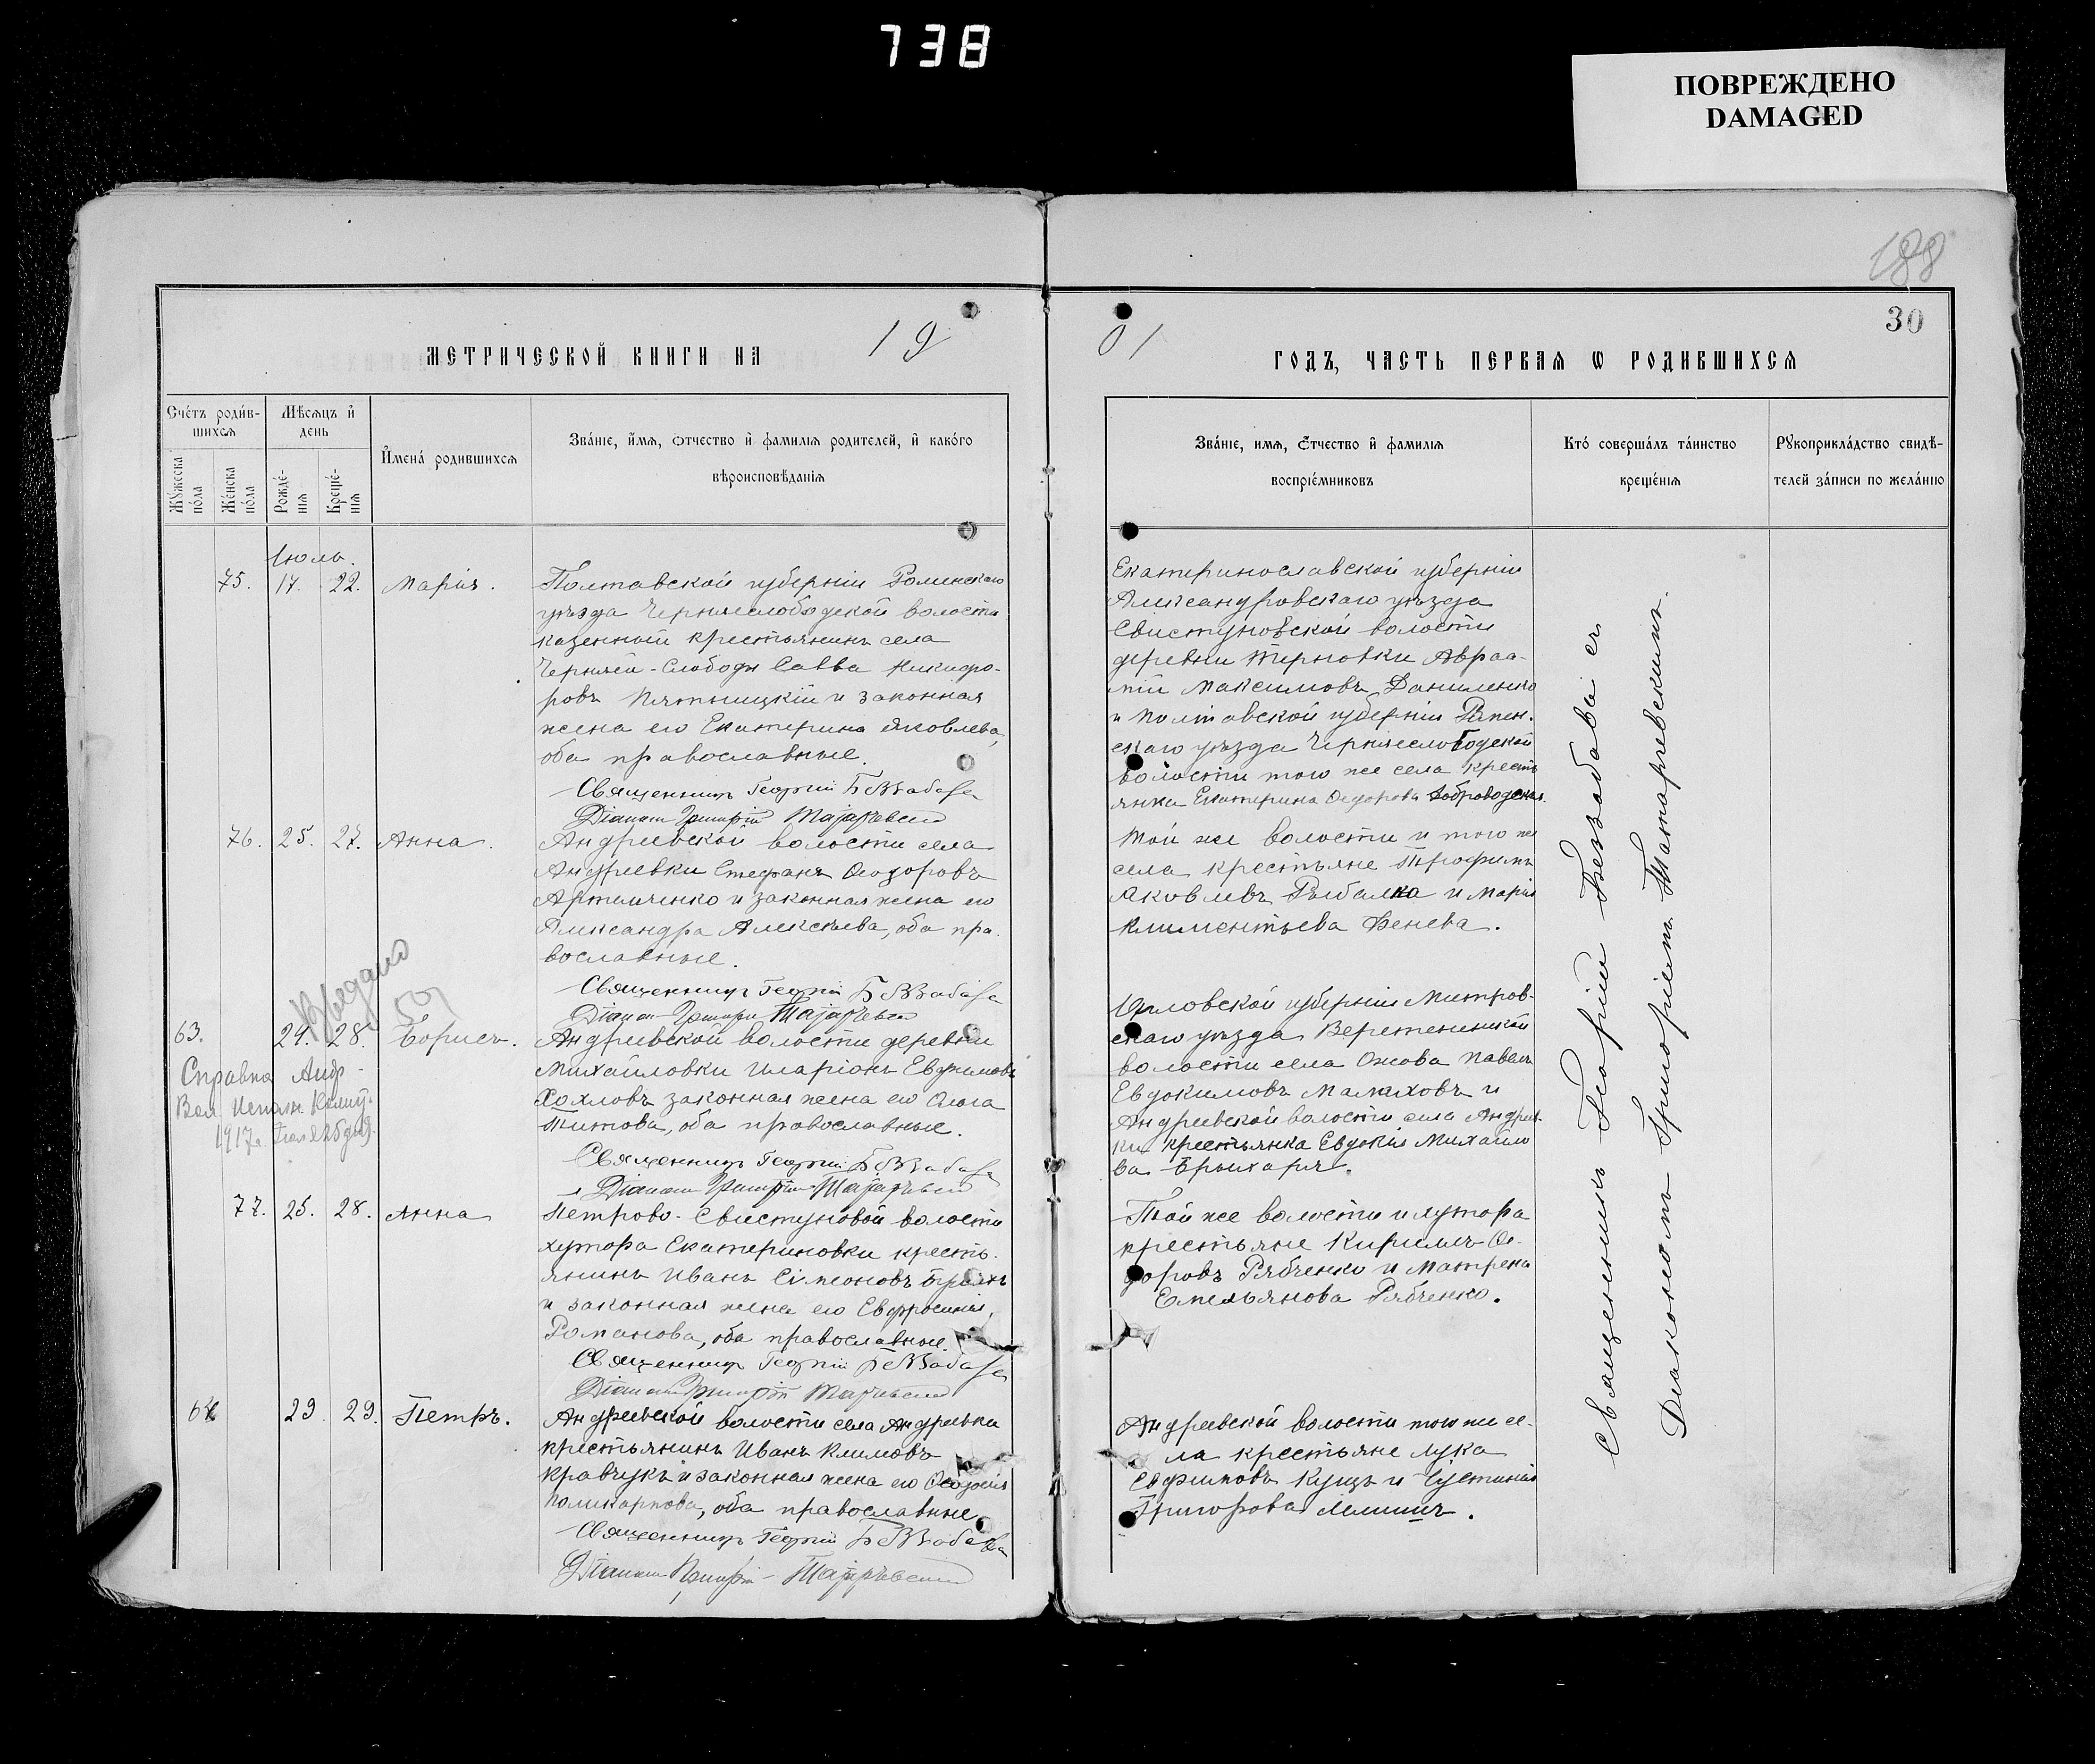 738
ПОВРЕЖДЕНО
DAMAGED
188
30
МЕТРИЧЕСКОЙ КНИГИ НА 19
01 ГОДЪ, ЧАСТЬ ПЕРВАЯ Ѡ РОДИВШИХСЯ
Счетъ родив-
шихся
Мѣсяцъ и
день
Мужеска
пола
Женска
пола
Рожде-
нія
Креще-
нія
Имена родившихся
Званіе, имя, отчество и фамилія родителей, и какого
вѣроисповѣданія
Званіе, имя, отчество и фамилія
воспріемниковъ
Кто совершалъ таинство
крещенія
Рукоприкладство свидѣ-
телей записи по желанію
Іюль.
75. 17. 22. Марія.
Полтавской губерніи Роменскаго
уѣзда Черняеслободской волости
казенный крестьянинъ села
Чернчей-Слободы Савва Никифо-
ровъ Пятницкій и законная
жена его Екатерина Яковлева,
оба православные.
Священникъ Георгій Беззабава
Діаконъ Григорій Татаревскій
Екатеринославской губерніи
Александровскаго уѣзда
Свистуновской волости
деревни Терновки Авраа-
мій Максимовъ Даниленко
и Полтавской губерніи Ромен-
скаго уѣзда Чернеслободской
волости того же села кресть
янка Екатерина Ѳедорова Добраводская.
76. 25. 27. Анна.
Андреевской волости села
Андреевки Стефанъ Ѳеодоровъ
Артемченко и законная жена его
Александра Алексѣева, оба пра-
вославные.
Священникъ Георгій Беззабава
Діаконъ Григорій Татаревскій
Той же волости и того же
села крестьяне Трофимъ
Яковлевъ Рыбалка и Марія
Климентьева Бенева.
63. 24. 28. Борисъ.
Справка Андр-
Вол. Исполн. Комит.
1917г.
Андреевской волости деревни
Михайловки Иларіонъ Евфимовъ
Хохловъ законная жена его Ольга
Титова, оба православные.
Священникъ Георгій Беззабава
Діаконъ Григорій Татаревскій
Орловской губерніи Митров-
скаго уѣзда Веретенинской
волости села Ожова Павелъ
Евдокимовъ Малаховъ и
Андреевской волости села Андреев-
ки крестьянка Евдокія Михайло
ва
77. 25. 28. Анна
Петрово-Свистуновой волости
хутора Екатериновки кресть-
янинъ Иванъ Сімеоновъ
и законная жена его Евфросинія
Романова, оба православные.
Священникъ Георгій Беззабава
Діаконъ Григорій Татаревскій
Той же волости и хутора
крестьяне Кириллъ Ѳе-
доровъ Рябченко и Матрена
Емельянова Рябченко.
64 29. 29. Петръ.
Андреевской волости села Андреевки
крестьянинъ Иванъ Климовъ
Кравчукъ и законная жена его Ѳеодосія
Поликарпова, оба православные.
Священникъ Георгій Беззабава
Діаконъ Григорій Татаревскій
Андреевской волости того же се-
ла крестьяне Лука
Евфимовъ Куцъ и Іустинія
Григорова
Священникъ Георгій Беззабава съ
Діакономъ Григоріемъ Татаревскимъ.